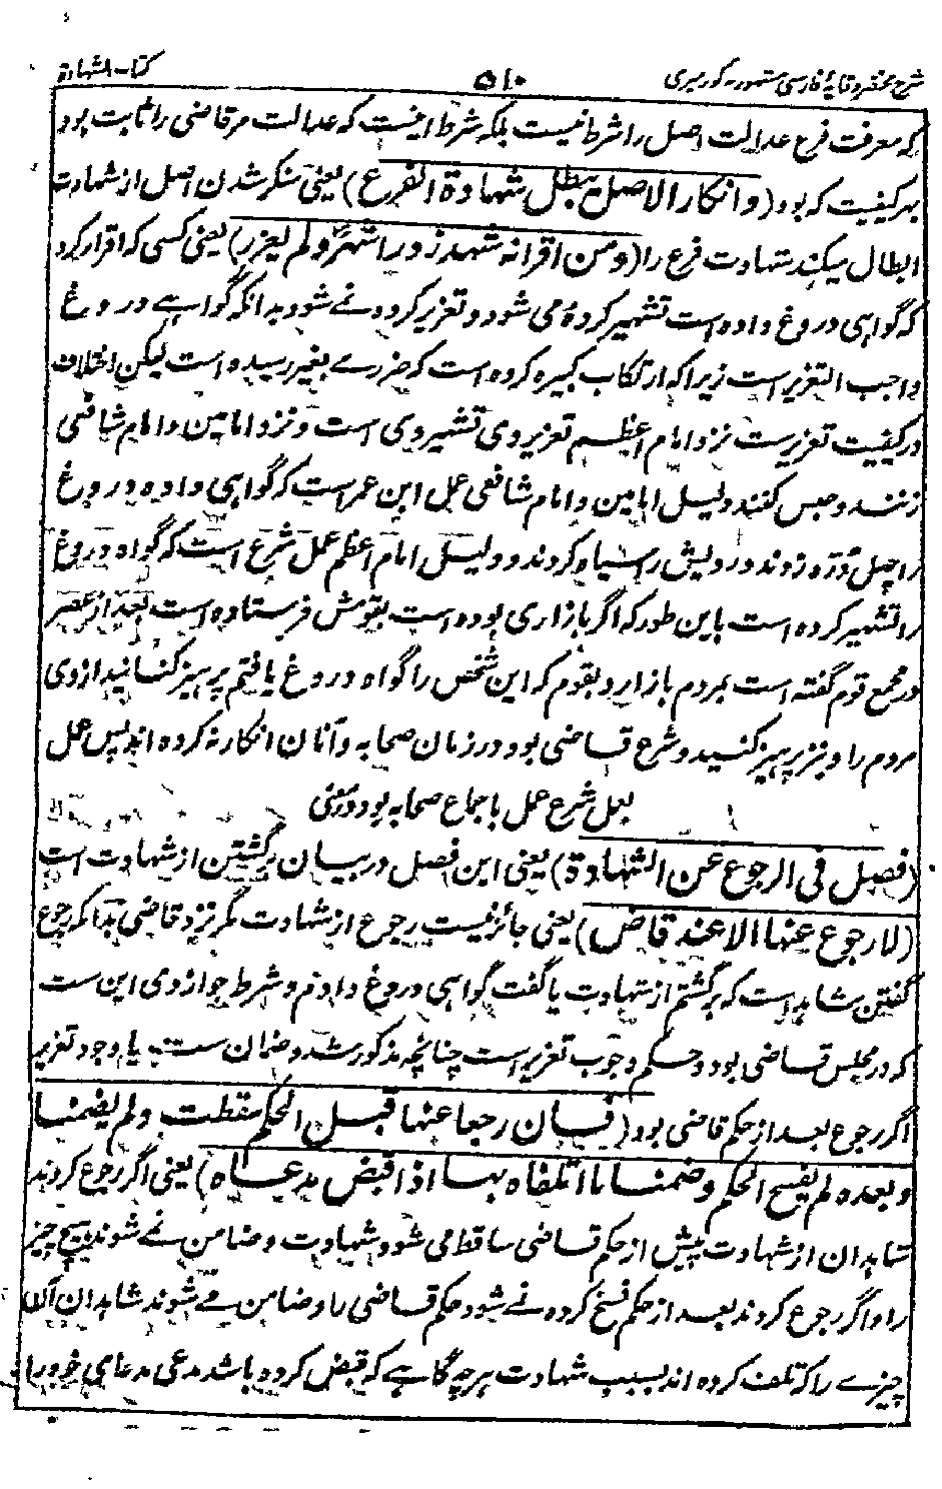 شرح مختصر وقایۀ فارسی مشهور بہ کور میری ۵۱۰ کتاب الشہادة
کہ معرفت فرع عدالت اصل را شرط نیست بلکہ شرط اینست کہ عدالت مر قاضی را ثابت بود
بہر کیفیت کہ بود (وانکار الاصل یبطل شہادة الفرع) یعنی منکر شدن اصل از شہادت
ابطال میکند شہادت فرع را (ومن اقر انہ شہد زورا شہر ولم یعزر) یعنی کسی کہ اقرار کرد
کہ گواہی دروغ داده است تشہیر کرده می شود و تعزیر کرده نے شود بدانکہ گواہے دروغ
واجب التعزیر است زیرا کہ ارتکاب کبیره کرده است کہ ضررے بغیر رسیده است لیکن اختلاف
در کیفیت تعزیرست نزد امام اعظم تعزیر وی تشہیر وی است و نزد امامین و امام شافعی
زنند و حبس کنند دلیل امامین و امام شافعی عمل ابن عمر است کہ گواہی داده دروغ
را چہل دره زدند و رویش را سیاه کردند و دلیل امام اعظم عمل شرع است کہ گواه دروغ
را تشہیر کرده است باین طور کہ اگر بازاری بوده است بقومش فرستاده است بعد از عصر
در مجمع قوم گفتہ است بمردم بازار و بقوم کہ این شخص را گواه دروغ یافتم پرہیز کنید از وی
مردم را و نیز پرہیز کنید و شرع قاضی بود در زمان صحابہ و آنان انکار نہ کرده اند پس عمل
بعمل شرع عمل باجماع صحابہ بود در معنی
(فصل فی الرجوع عن الشہادة) یعنی این فصل در بیان برگشتن از شہادت است
(لا رجوع عنہا الا عند قاض) یعنی جائز نیست رجوع از شہادت مگر نزد قاضی بدانکہ رجوع
گفتن شاہد است کہ برگشتم از شہادت یا گفت گواہی دروغ دادم و شرط جواز وی این ست
کہ در مجلس قاضی بود و حکم وجوب تعزیر است چنانچہ مذکور شد و ضمان ست با وجود تعزیر
اگر رجوع بعد از حکم قاضی بود (فان رجعا عنہا قبل الحکم سقطت ولم یضمنا
وبعده لم یفسخ الحکم وضمنا ما اتلفاه بہا اذا قبض مدعاه) یعنی اگر رجوع کردند
شاہدان از شہادت پیش از حکم قاضی ساقط می شود شہادت و ضامن نے شوند ہیچ چیز
را و اگر رجوع کردند بعد از حکم فسخ کرده نے شود حکم قاضی را و ضامن مے شوند شاہدان آن
چیزے را کہ تلف کرده اند بسبب شہادت ہر چہ گاہے کہ قبض کرده باشد مدعی مدعاہی خود را